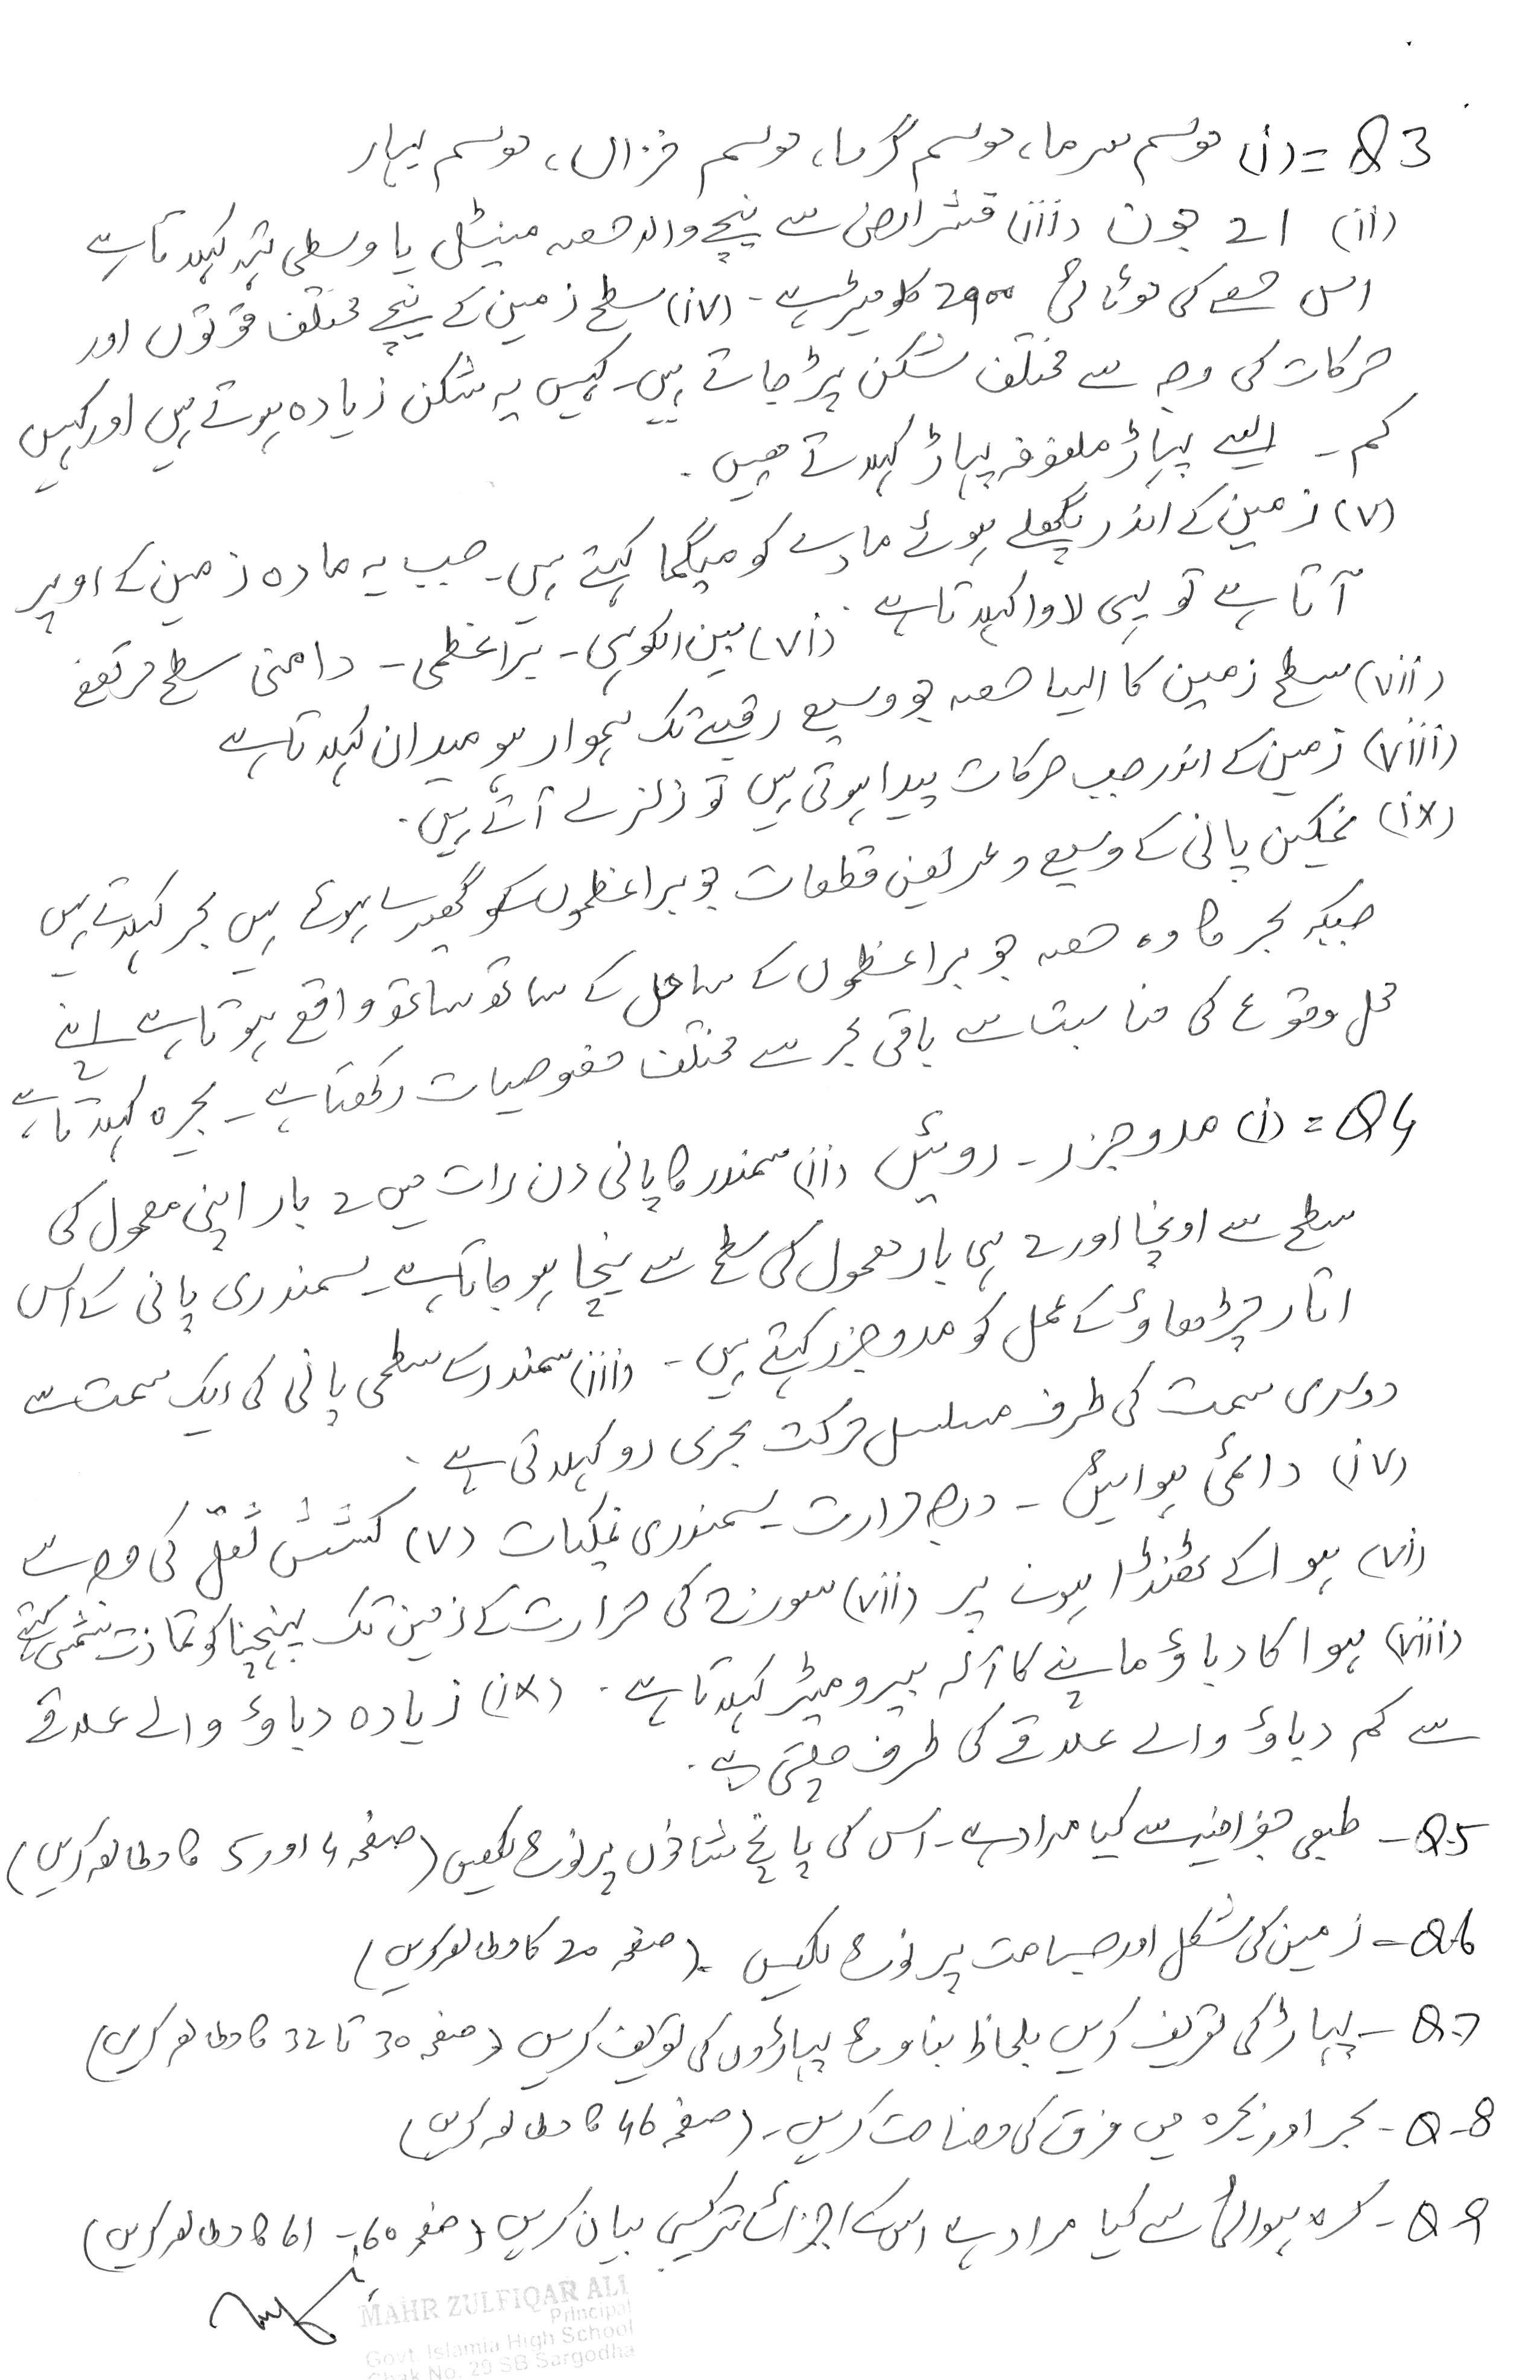 Q3 =(i) موسم سرما، موسم گرما، موسم خزاں، موسم بہار
(ii) 21 جون (iii) قشر ارض سے نیچے والا حصہ مینٹل یا وسطی تہہ کہلاتا ہے
اس حصے کی موٹائی 2900 کلومیٹر ہے - (iv) سطح زمین کے نیچے مختلف قوتوں اور
حرکات کی وجہ سے مختلف شکن پڑ جاتے ہیں۔ کہیں یہ شکن زیادہ ہوتے ہیں اور کہیں
کم ۔ ایسے پہاڑ ملفوفہ پہاڑ کہلاتے ہیں .
(v) زمین کے اندر پگھلے ہوئے مادے کو میگما کہتے ہیں۔ جب یہ مادہ زمین کے اوپر
آتا ہے تو یہی لاوا کہلاتا ہے . (vi) بین الکوہی - براعظمی - دامنی سطح مرتفع
(vii) سطح زمین کا ایسا حصہ جو وسیع رقبے تک ہموار ہو میدان کہلاتا ہے
(viii) زمین کے اندر جب حرکات پیدا ہوتی ہیں تو زلزلے آتے ہیں .
(ix) نمکین پانی کے وسیع و عریض قطعات جو براعظموں کو گھیرے ہوئے ہیں بحر کہلاتے ہیں
جبکہ بحر کا وہ حصہ جو براعظموں کے ساحل کے ساتھ ساتھ واقع ہوتا ہے اپنے
محل وقوع کی مناسبت سے باقی بحر سے مختلف خصوصیات رکھتا ہے - بحیرہ کہلاتا ہے
Q4 = (i) مدوجزر - روئیں (ii) سمندر کا پانی دن رات میں 2 بار اپنی معمول کی
سطح سے اونچا اور 2 ہی بار معمول کی سطح سے نیچا ہو جاتا ہے ۔ سمندری پانی کے اس
اتار چڑھاؤ کے عمل کو مدوجزر کہتے ہیں - (iii) سمندر کے سطحی پانی کی ایک سمت سے
دوسری سمت کی طرف مسلسل حرکت بحری رو کہلاتی ہے .
(iv) دائمی ہوائیں - درجہ حرارت - سمندری نمکیات (v) کشش ثقل کی وجہ سے
(vi) ہوا کے ٹھنڈا ہونے پر (vii) سورج کی حرارت کے زمین تک پہنچنا کو تمازت شمسی کہتے
(viii) ہوا کا دباؤ ماپنے کا آلہ بیرومیٹر کہلاتا ہے . (ix) زیادہ دباؤ والے علاقے
سے کم دباؤ والے علاقے کی طرف چلتی ہے .
Q5 - طبعی جغرافیہ سے کیا مراد ہے - اس کی پانچ شاخوں پر نوٹ لکھیں (صفحہ 4 اور 5 کا مطالعہ کریں)
Q6 - زمین کی شکل اور جسامت پر نوٹ لکھیں . (صفحہ 20 کا مطالعہ کریں)
Q.7 - پہاڑ کی تعریف کریں بلحاظ بناوٹ پہاڑوں کی تعریف کریں (صفحہ 30 تا 32 کا مطالعہ کریں)
Q-8 - بحر اور بحیرہ میں فرق کی وضاحت کریں - (صفحہ 46 کا مطالعہ کریں)
Q 9 - کرہ ہوائی سے کیا مراد ہے اس کے اجزائے ترکیبی بیان کریں (صفحہ 60 - 61 کا مطالعہ کریں)
MAHR ZULFIQAR ALI
Principal
Govt. Islamia High School
Chak No. 29 SB Sargodha